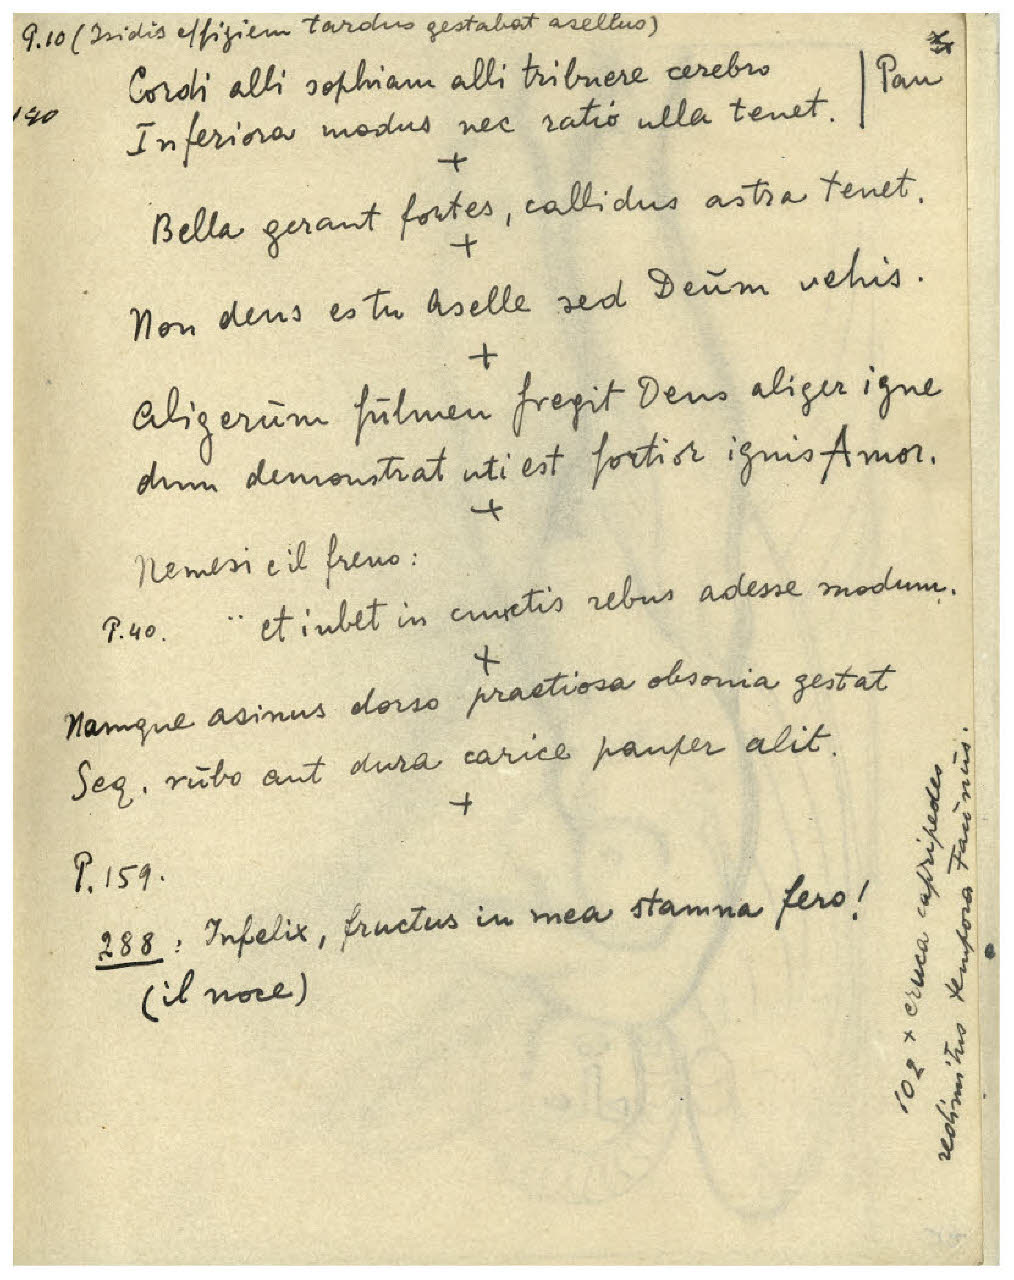 P.10 (Isidis effigiem tardus gestabat asellus)
Cordi alli sophiam alli tribuere cerebro | Pan
140
Inferiora modus nec ratio ulla tenet.
+
Bella gerant fortes, callidus astra tenet.
+
Non deus es tu Aselle sed Deūm vehis.
+
Aligerūm fūlmen fregit Deus aliger igne
dum demonstrat uti est fortior ignis Amor.
+
Nemesi e il freno:
P.40. .. et iubet in cunctis rebus adesse modum.
+
Namque asinus dorso praetiosa obsonia gestat
Seq. rūbo aut dura carice pauper alit.
+
P.159.
288: Infelix, fructus in mea stamna fero!
(il noce)
102 + eruca capripedes
redimitus tempora Faūnūs.